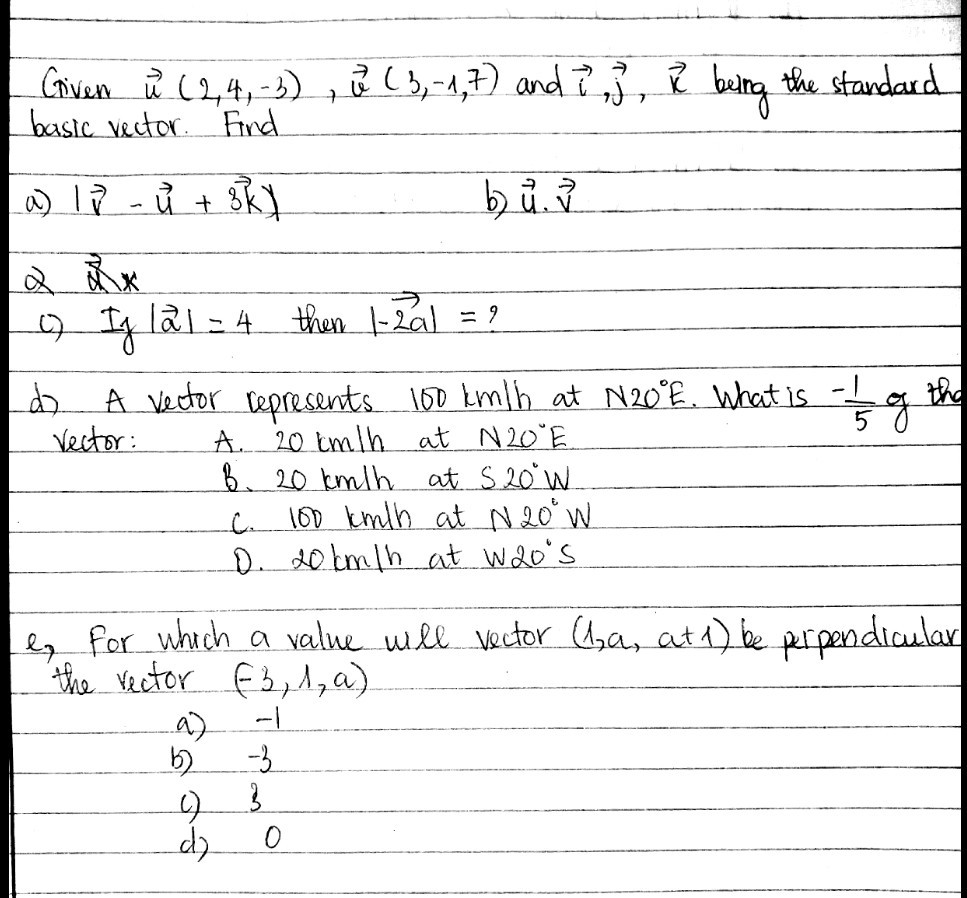 Given u⃗ (2,4,-3) , v⃗ (3,-1,7) and i⃗ ,j⃗ , k⃗ being the standard
basic vector. Find
a) |v⃗ - u⃗ + 3k⃗| b) u⃗ . v⃗
c) If |a⃗| = 4 then |-2a⃗| = ?
d) A vector represents 100 km/h at N20°E. What is -1/5 of the
vector: A. 20 km/h at N20°E
B. 20 km/h at S20°W
C. 100 km/h at N20°W
D. 20 km/h at W20°S
e, For which a value will vector (1,a, a+1) be perpendicular
the vector (-3,1,a)
a) -1
b) -3
c) 3
d) 0